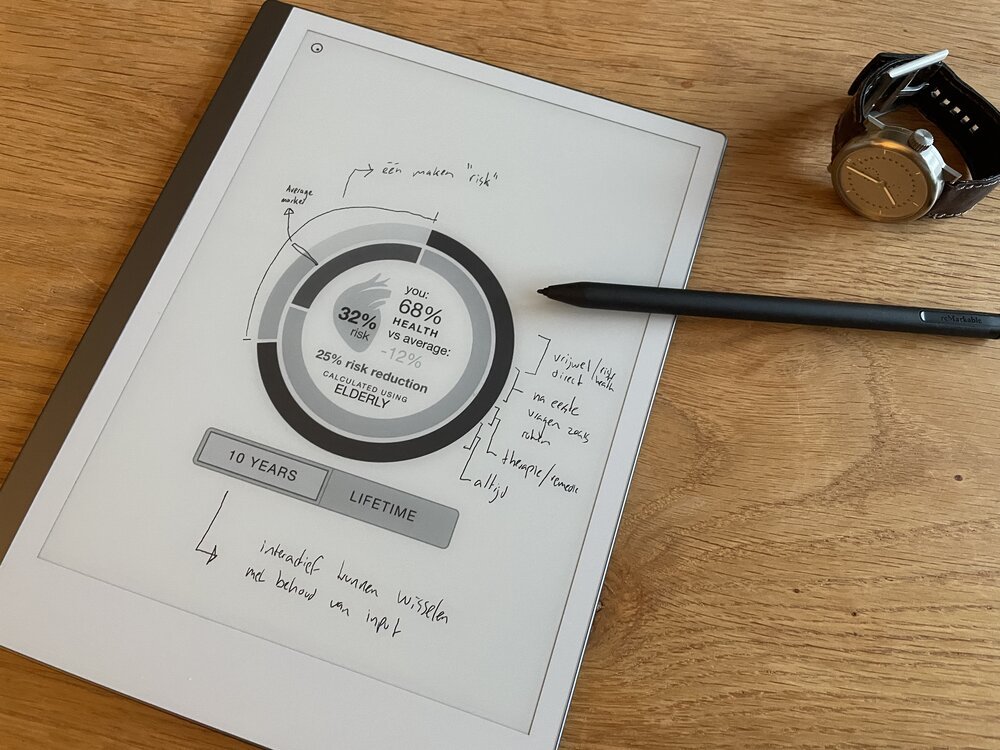 één maken "risk"
Average
market
you:
68%
HEALTH
vs average:
-12%
32%
risk
25% risk reduction
CALCULATED USING
ELDERLY
vrijwel/
direct
na eerste
vragen zoals
roken
therapie/
altijd
10 YEARS
LIFETIME
interactief kunnen wisselen
met behoud van input
reMarkable